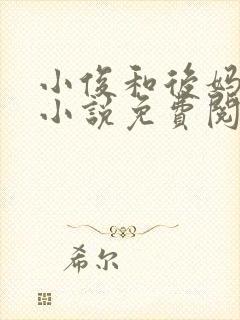 小俊和後妈
小説免費閱
希尔